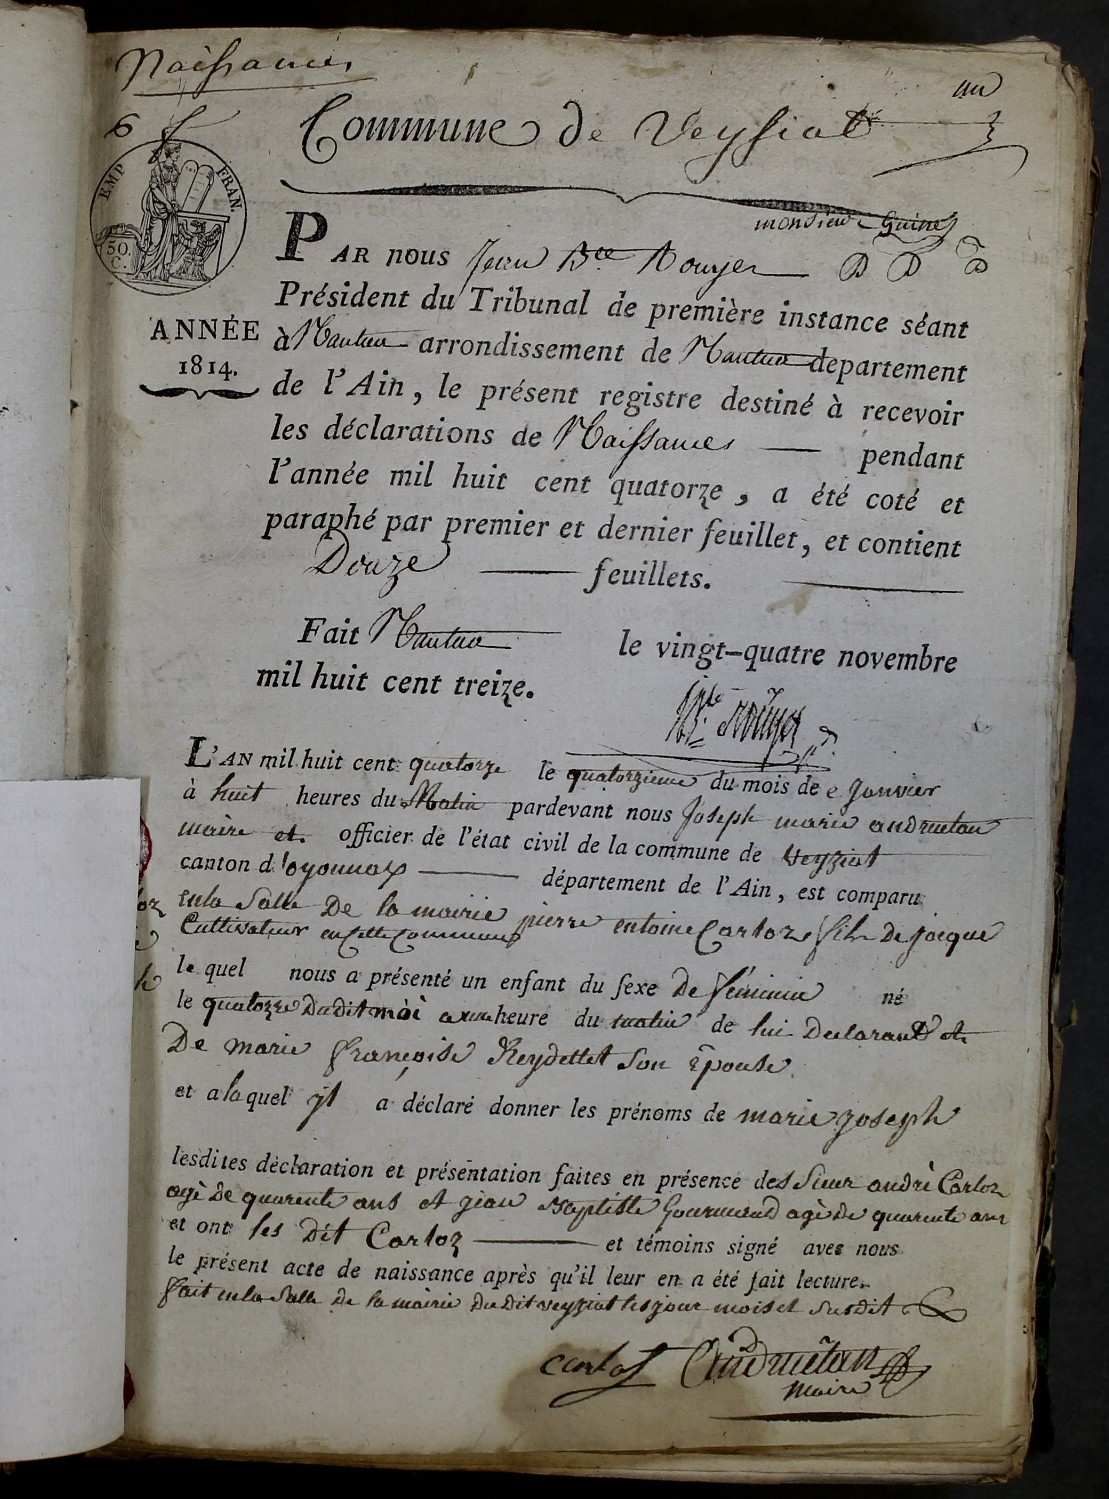 Naissances
un
6
Commune de Veyziat
EMP. FRAN.
50. C.
monsieur
PAR nous Jean Bte Rouyer
Président du Tribunal de première instance séant
ANNÉE
1814.
à Nantua arrondissement de Nantua departement
de l'Ain, le présent registre destiné à recevoir
les déclarations de Naissances pendant
l'année mil huit cent quatorze, a été coté et
paraphé par premier et dernier feuillet, et contient
Douze feuillets.
Fait Nantua le vingt-quatre novembre
mil huit cent treize.
Bte Rouyer
L'AN mil huit cent quatorze le quatorzieme du mois de Janvier
à huit heures du Matin pardevant nous Joseph marie andruetan
maire et officier de l'état civil de la commune de Veyziat
canton d'oyonnax département de l'Ain, est comparu
en la Salle De la mairie pierre entoine Carloz fils De jacque
Cultivateur en Cette Commune
le quel nous a présenté un enfant du sexe De féminin né
le quatorze Du dit moi a une heure du matin de lui Declarant et
De marie françoise Reydellet Son Epouse
et a la quel yl a déclaré donner les prénoms de marie joseph
lesdites déclaration et présentation faites en présence des Sieur andrè Carloz
agè De quarente ans et jean Baptiste Gourmand agè de quarente ans
et ont les Dit Carloz et témoins signé avec nous
le présent acte de naissance après qu'il leur en a été fait lecture.
fait en la Salle de la mairie du dit veyziat les jour mois et susdit
Carloz Andruétan
Maire